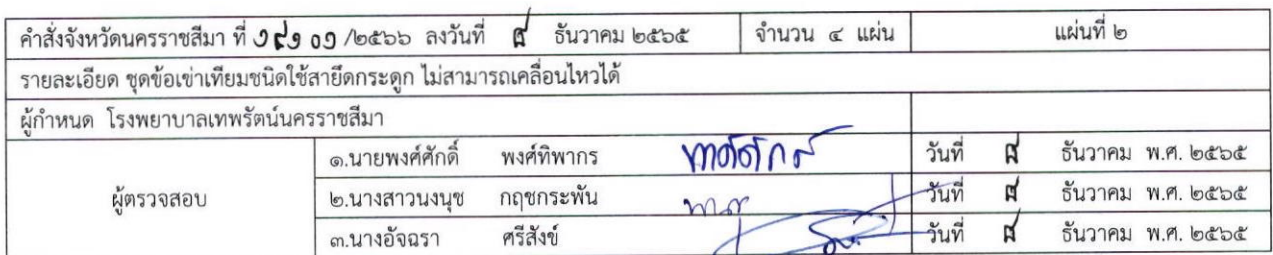 คำสั่งจังหวัดนครราชสีมา ที่ ๑๙๑๐๑ /๒๕๖๖ ลงวันที่ ๘ ธันวาคม ๒๕๖๕ จำนวน ๔ แผ่น แผ่นที่ ๒
รายละเอียด ชุดข้อเข่าเทียมชนิดใช้สายยึดกระดูก ไม่สามารถเคลื่อนไหวได้
ผู้กำหนด โรงพยาบาลเทพรัตน์นครราชสีมา
๑.นายพงศ์ศักดิ์ พงศ์ทิพากร วันที่ ๘ ธันวาคม พ.ศ. ๒๕๖๕
ผู้ตรวจสอบ ๒.นางสาวนงนุช กฤชกระพัน วันที่ ๘ ธันวาคม พ.ศ. ๒๕๖๕
๓.นางอัจฉรา ศรีสังข์ วันที่ ๘ ธันวาคม พ.ศ. ๒๕๖๕